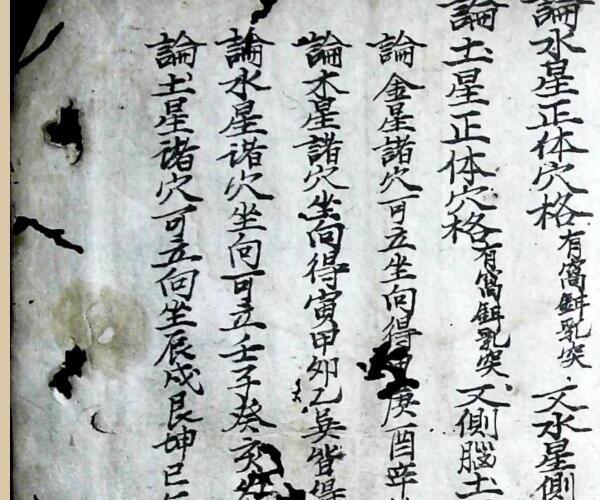 論水星正体穴格有窩鉗乳突又水星側
論土星正体穴格有窩鉗乳突又側腦土
論金星諸穴可立坐向得庚酉辛
論木星諸穴坐向得寅甲卯乙巽皆得
論水星诸穴坐向可立壬子癸亥
論土星诸穴可立向坐辰戌艮坤巳